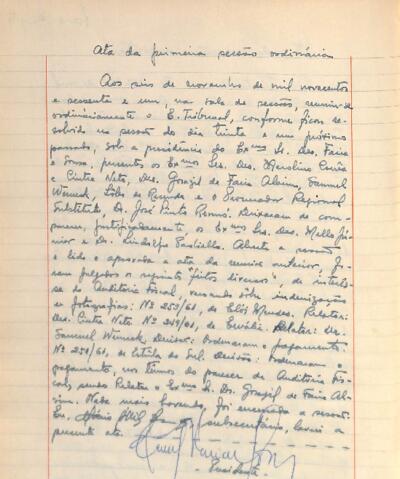 Ata da primeira sessão ordinária
Aos seis de novembro de mil novecentos
e sessenta e um, na sala de sessões, reuniu-se
ordinariamente o E. Tribunal, conforme ficou re-
solvido na sessão do dia trinta e um próximo
passado, sob a presidência do Exmo Sr. Des. Faria
e Sousa, presentes os Exmos Srs. Des. Marcelino Corrêa
e Cintra Neto, Drs. Grazil de Faria Alvim, Samuel
Werneck, Lobo de Resende e o Procurador Regional
Substituto, Dr. José Pinto Renó. Deixaram de com-
parecer, justificadamente, os Exmos Srs. Des. Mello Jú-
nior e Dr. Lindolfo Paoliello. Aberta a sessão,
é lida e aprovada a ata da reunião anterior. Fo-
ram julgados os seguintes "feitos diversos", de interêsse
da Auditoria Fiscal, versando sôbre indenização
de fotografias: Nº 253/61, de Elói Mendes. Relator:
Des. Cintra Neto. Nº 249/61, de Ervália. Relator: Dr.
Samuel Werneck. Decisão: Ordenaram o pagamento.
Nº 259/61, de Estrêla do Sul. Decisão: Ordenaram o
pagamento, nos termos do parecer da Auditoria Fis-
cal, sendo Relator o Exmo Sr. Dr. Grazil de Faria Al-
vim. Nada mais havendo, foi encerrada a sessão.
Eu, secretário, lavrei a
presente ata.
Presidente.